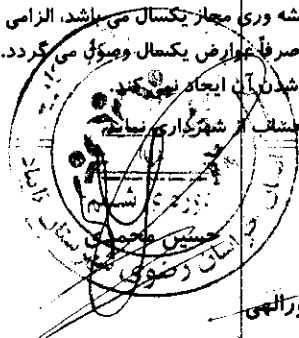 شه وری مجاز یکسال می باشد، الزامی
صرفاً عوارض یکسال وصول می گردد.
شدن آن ایجاد نمی کند.
از شهرداری نماید
حسین محمدی
خراسان رضوی
ورالهی